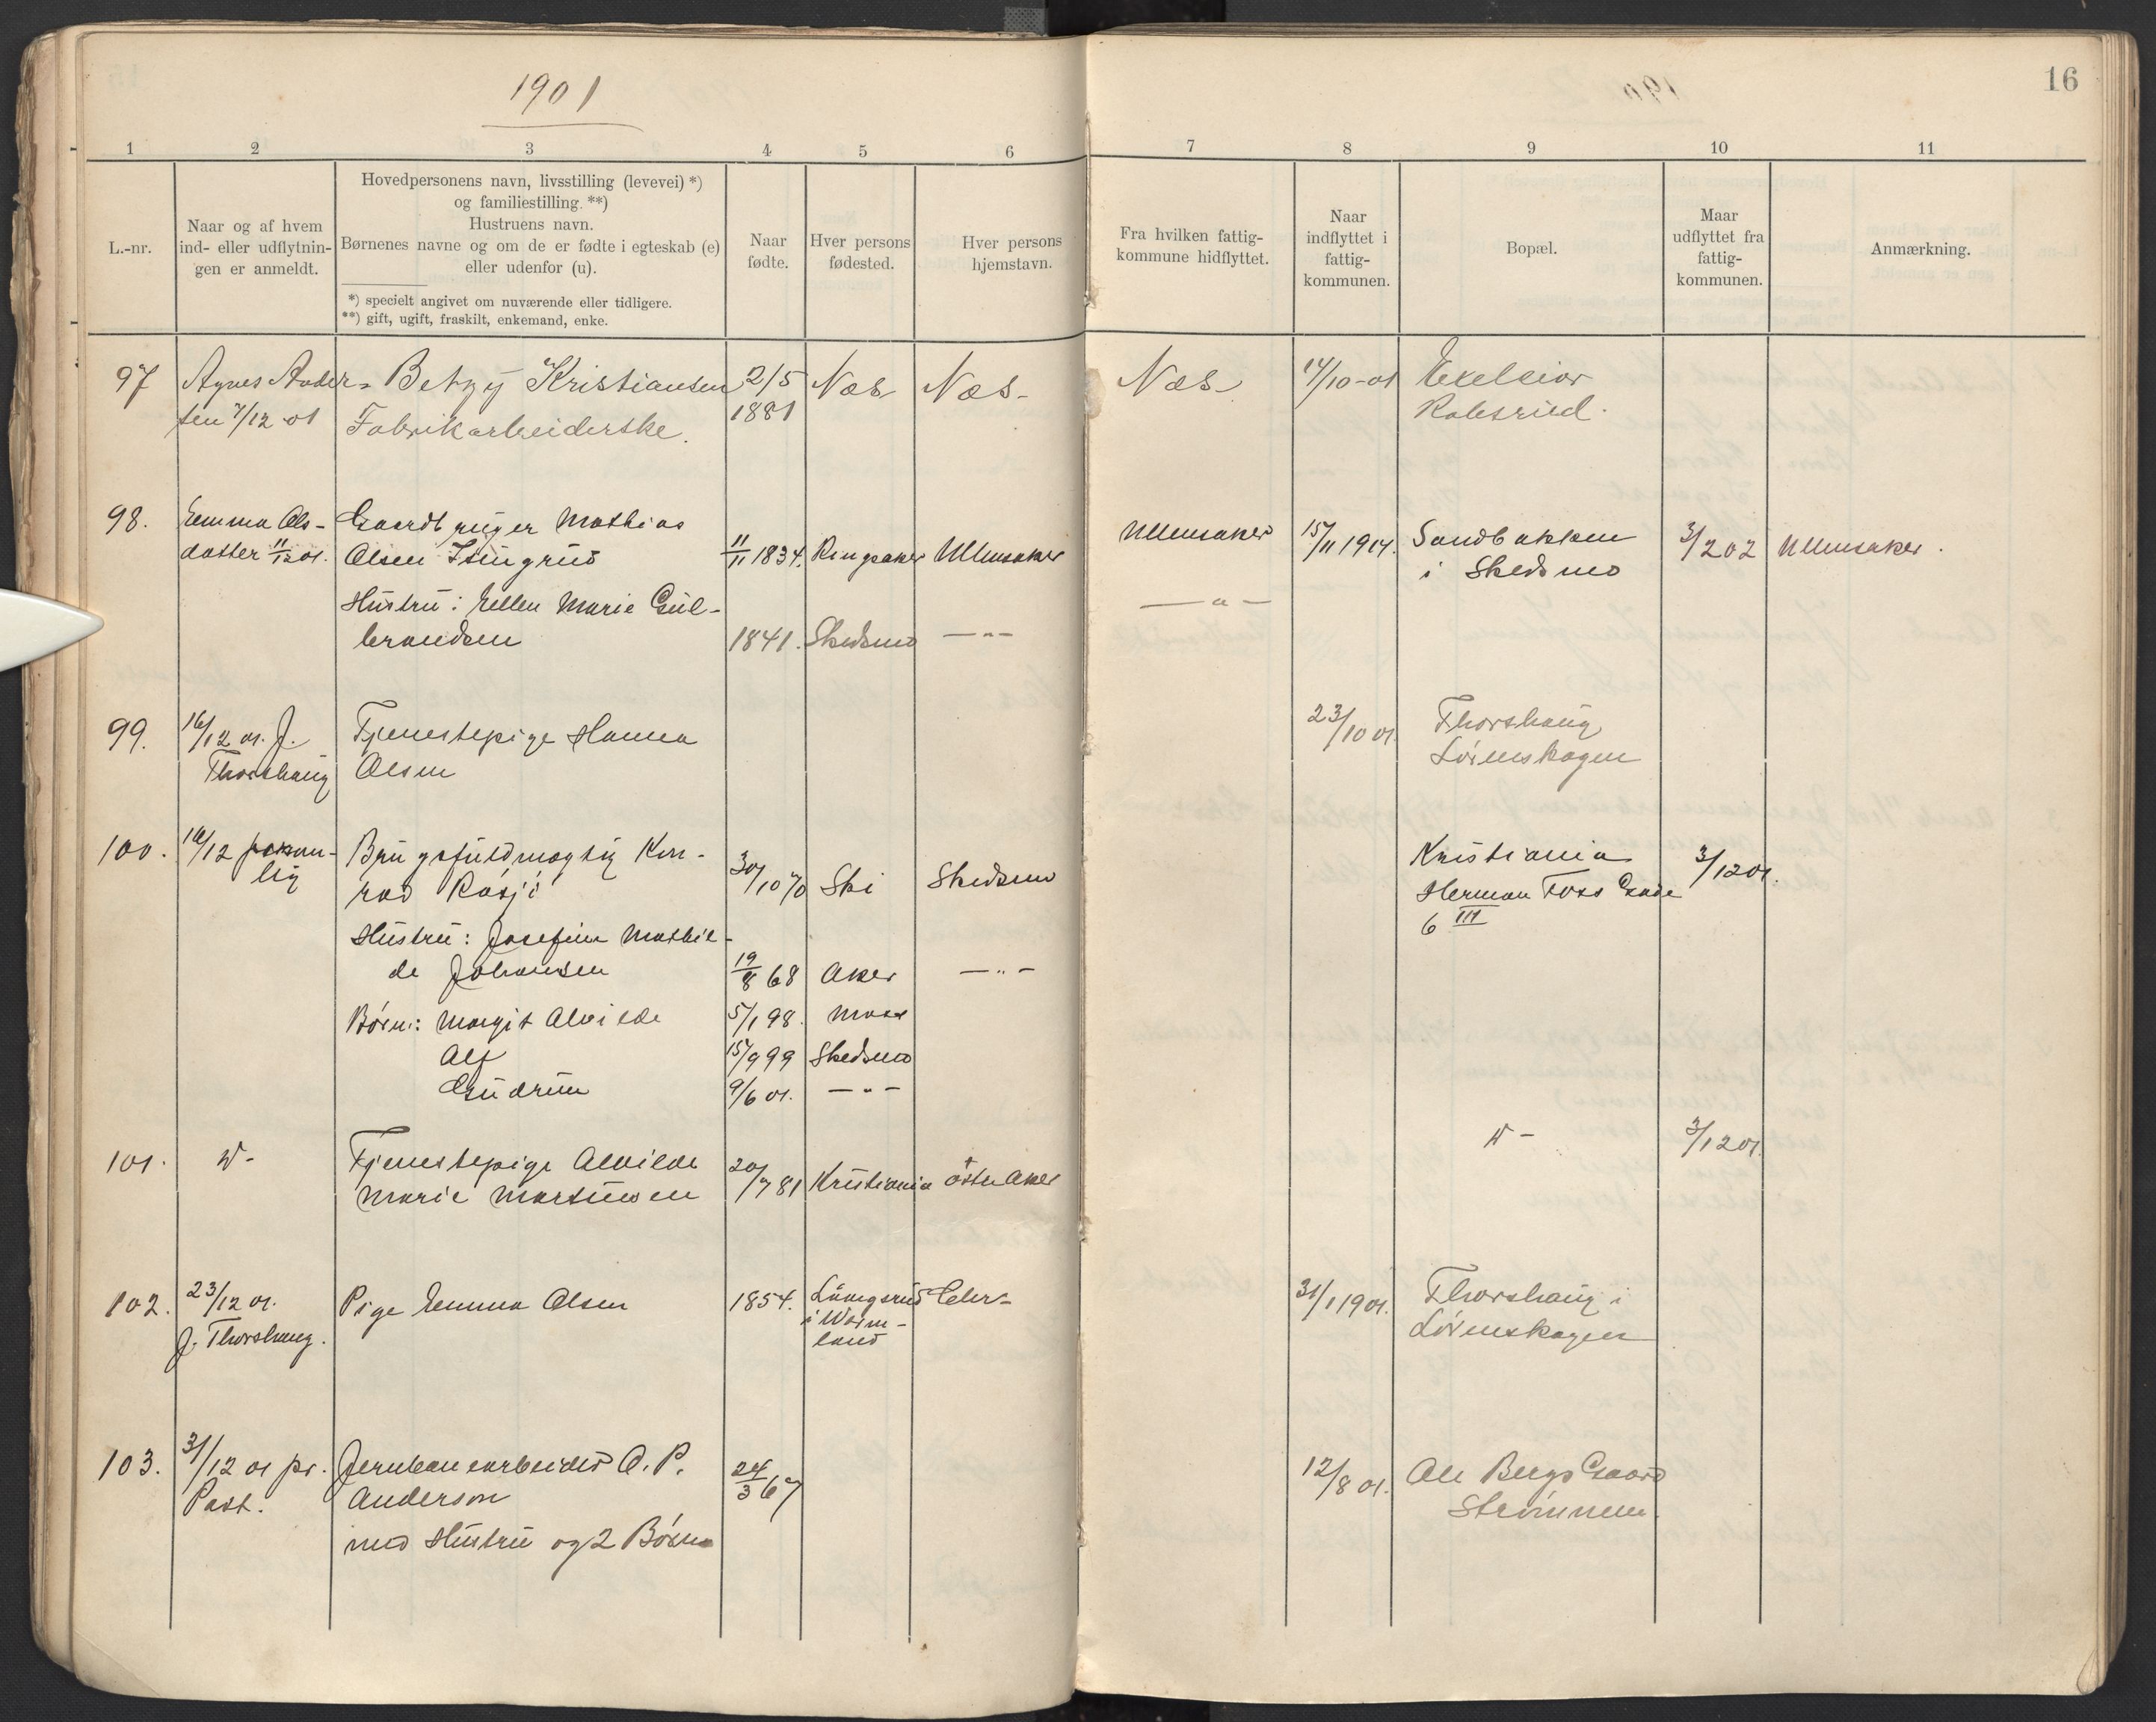 1901
16
1 2 3 4 5 6 7 8 9 10 11
L.-nr.
Naar og af hvem
ind- eller udflytnin-
gen er anmeldt.
Hovedpersonens navn, livsstilling (levevei) *)
og familiestilling. **)
Hustruens navn.
Børnenes navne og om de er fødte i egteskab (e)
eller udenfor (u).
*) specielt angivet om nuværende eller tidligere.
**) gift, ugift, fraskilt, enkemand, enke.
Naar
fødte.
Hver persons
fødested.
Hver persons
hjemstavn.
Fra hvilken fattig-
kommune hidflyttet.
Naar
indflyttet i
fattig-
kommunen.
Bopæl.
Maar
udflyttet fra
fattig-
kommunen.
Anmærkning.
97 Agnes Ander- Betzy Kristiansen 2/5 Næs Næs- Næs 14/10-01 Exelsior
sen 7/12 01 Fabrikarbeiderske. 1881 Robsrud.
98. Emma Ols- Gaardbruger Mathias Ullensaker 15/11 1901. Sandbakken 3/2 02 Ullensaker.
datter 11/12 01. Olsen 11/11 1834. Ringsaker Ullensaker i Skedsmo
Hustru: Ellen Marie Gul- — " —
brandsen 1841. Skedsmo — " —
99. 16/12 01. J. Tjenestepige Hanna 23/10 01. Thorshaug
Thorshaug Olsen Lørenskogen
100. 16/12 person- Brugsfuldmægtig Kon- Kristiania 3/12 01.
lig rad Råsjö 30/10 70 Ski Skedsmo Herman Foss Gade
6 III
Hustru: Josefine Mathil-
de Johansen 19/8 68 Aker — " —
Børn: Margit Alvilde 5/1 98. Moss
Alf 15/9 99 Skedsmo
Gudrun 9/6 01. — " —
101. " - Tjenestepige Alvilde 20/7 81 Kristiania Östre Aker " - 3/12 01
Marie Martinsen
102. 23/12 01. Pige Emma Olsen 1854. 31/1 1901. Thorshaug i
J. Thorshaug. i Värm-
land Lørenskogen
103. 31/12 01 pr. Jernbanearbeider A. P. 24/3 67 12/8 01. Ole Bergs Gaard
Post. Anderson Strömmen.
med Hustru og 2 Börn